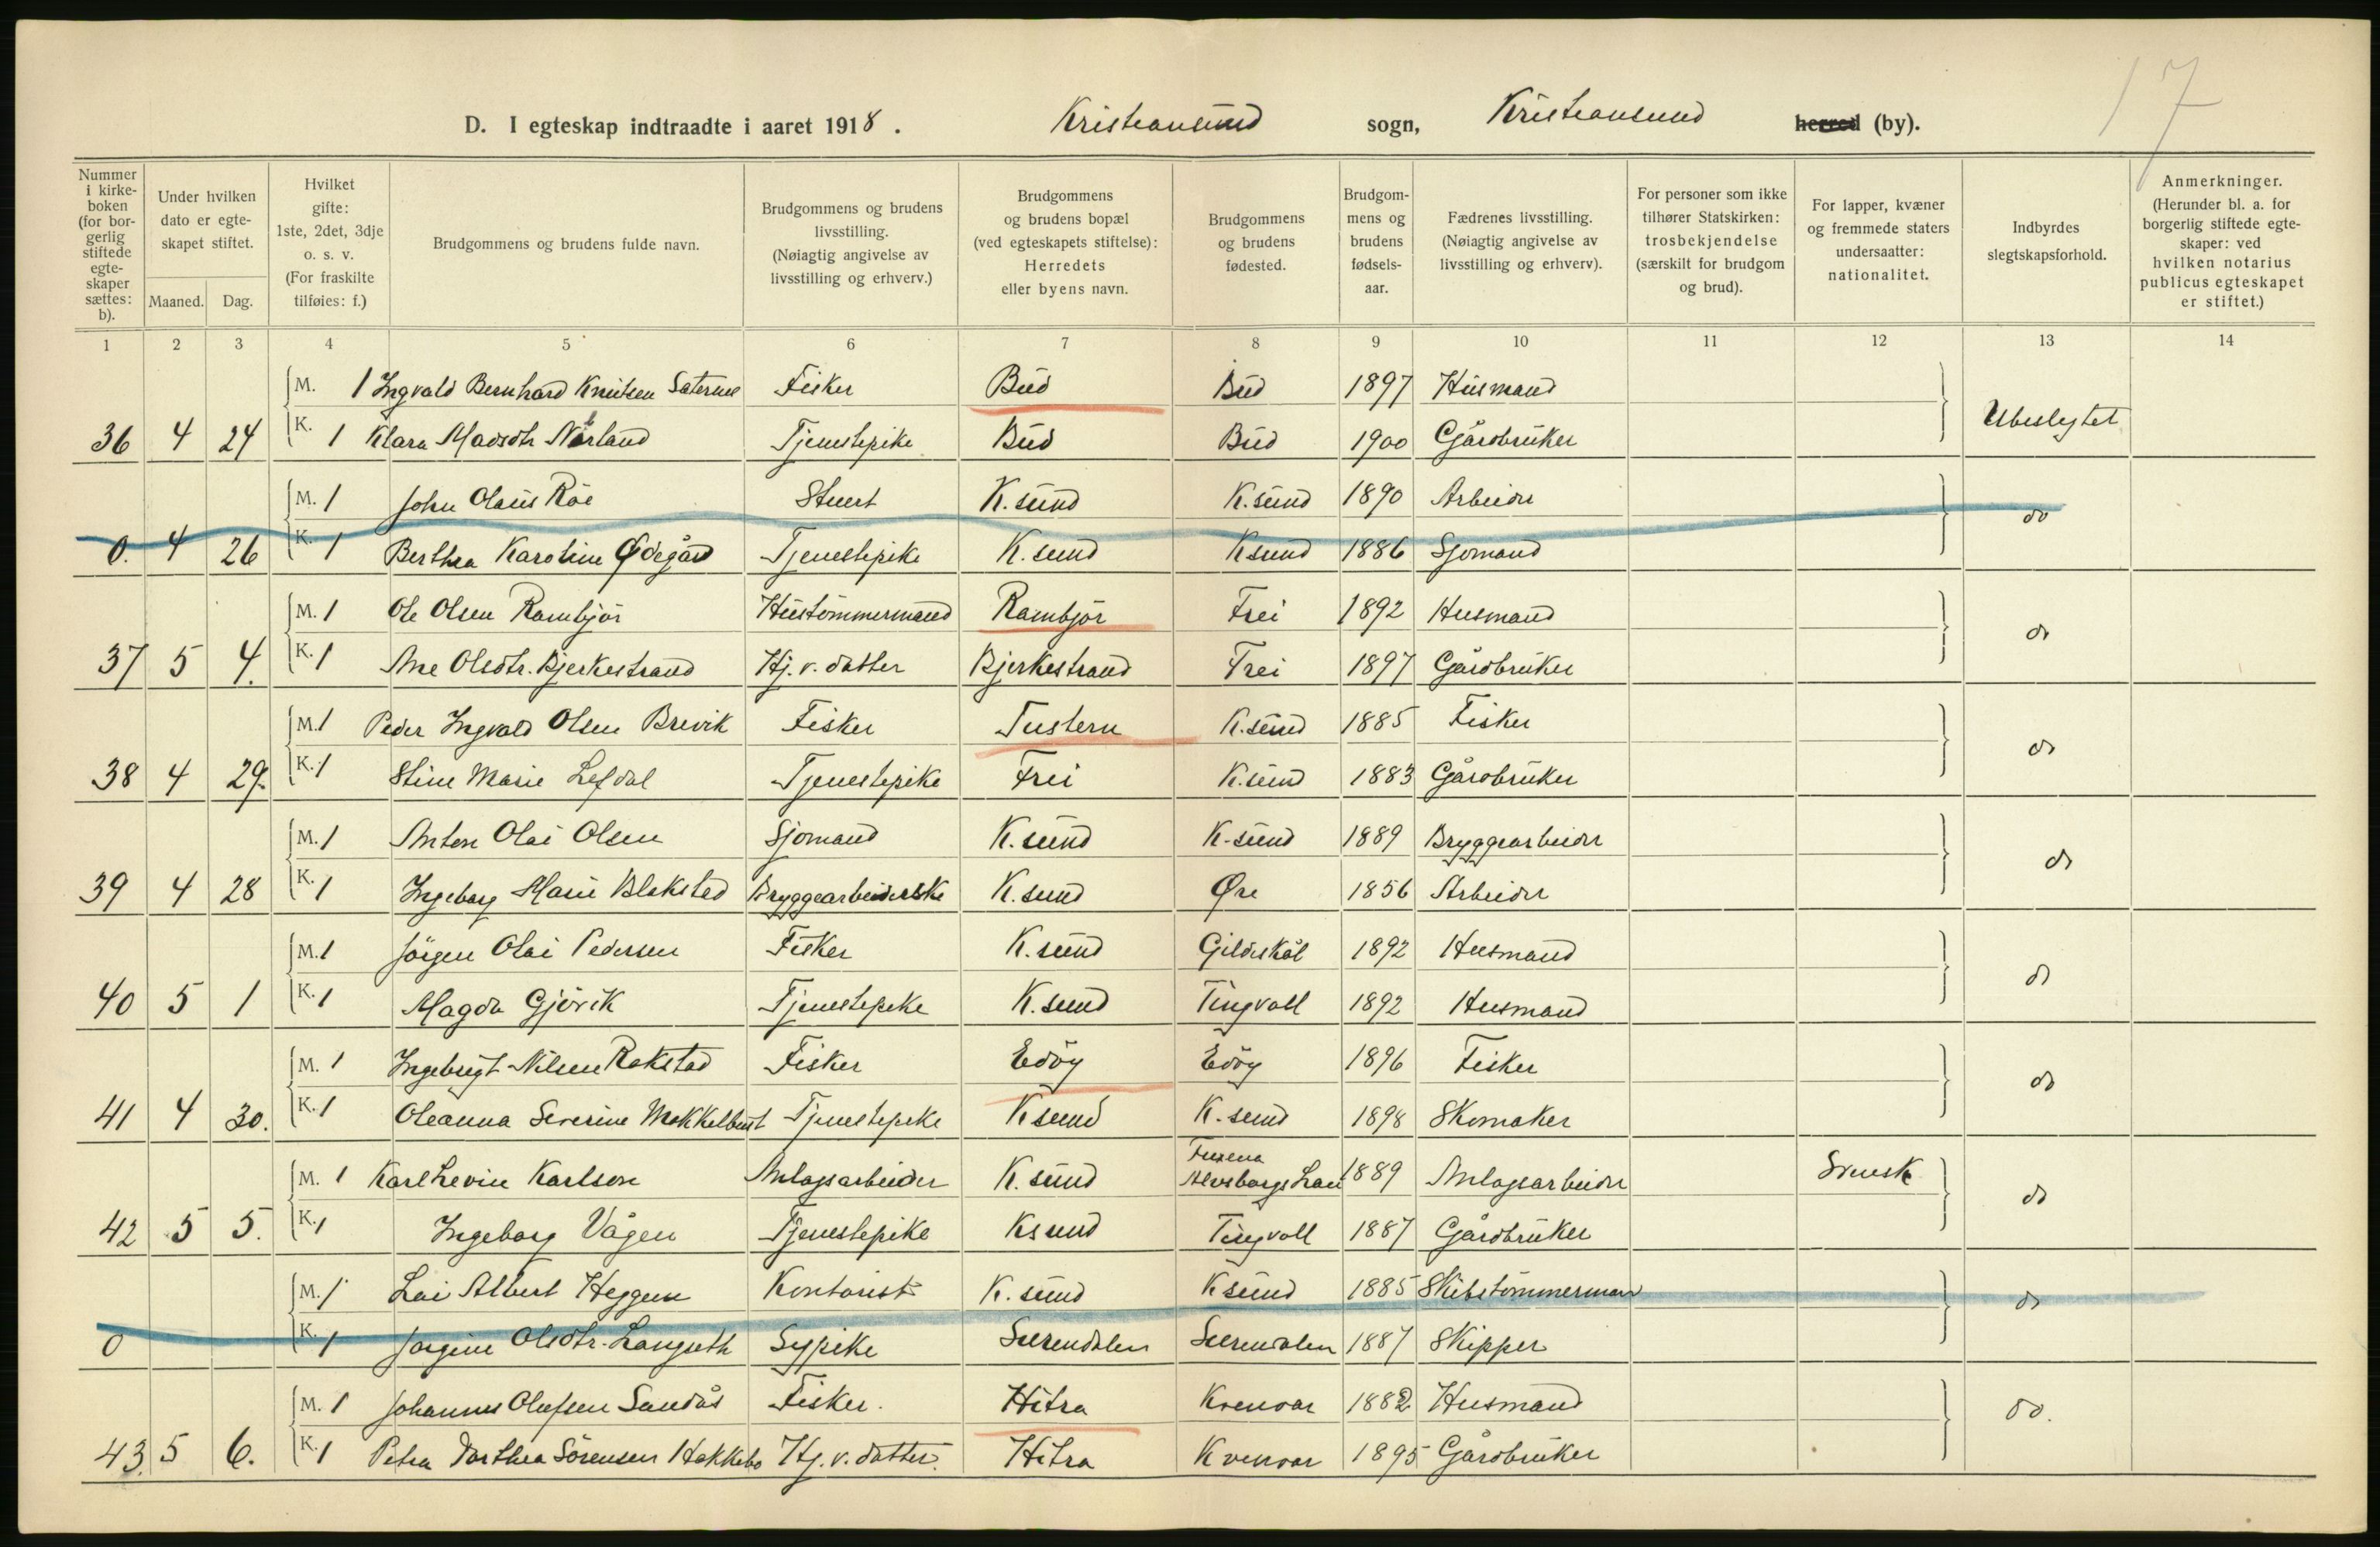 17
D. I egteskap indtraadte i aaret 1918. Kristiansund sogn, Kristiansund herred (by).
Nummer i kirkeboken (for borgerlig stiftede egteskaper sættes: b).
Under hvilken dato er egteskapet stiftet.
Maaned. Dag.
Hvilket gifte: 1ste, 2det, 3dje o. s. v. (For fraskilte tilføies: f.)
Brudgommens og brudens fulde navn.
Brudgommens og brudens livsstilling. (Nøiagtig angivelse av livsstilling og erhverv.)
Brudgommens og brudens bopæl (ved egteskapets stiftelse): Herredets eller byens navn.
Brudgommens og brudens fødested.
Brudgommens og brudens fødselsaar.
Fædrenes livsstilling. (Nøiagtig angivelse av livsstilling og erhverv).
For personer som ikke tilhører Statskirken: trosbekjendelse (særskilt for brudgom og brud).
For lapper, kvæner og fremmede staters undersaatter: nationalitet.
Indbyrdes slegtskapsforhold.
Anmerkninger. (Herunder bl. a. for borgerlig stiftede egteskaper: ved hvilken notarius publicus egteskapet er stiftet.)
1 2 3 4 5 6 7 8 9 10 11 12 13 14
M. 1 Ingvald Bernhard Knutsen Fisker Bud Bud 1897 Husmand
36 4 24 K. 1 Klara Madsdtr Nørland Tjenestepike Bud Bud 1900 Gårdbruker Ubeslegtet
M. 1 John Olaus Röe Stuert K.sund K.sund 1890 Arbeider
0. 4 26 K. 1 Berthea Karoline Ødegård Tjenestepike K.sund Ksund 1886 Sjømand do
M. 1 Ole Olsen Rambjör Hustömmermand Rambjör Frei 1892 Husmand
37 5 4. K. 1 Ane Olsdtr. Bjerkestrand Hj. v. datter Bjerkestrand Frei 1897 Gårdbruker do
M. 1 Peder Ingvald Olsen Brevik Fisker Tustern K.sund 1885 Fisker
38 4 29. K. 1 Stine Marie Lefdal Tjenestepike Frei K.sund 1883 Gårdbruker do
M. 1 Anton Olai Olsen Sjömand K.sund K.sund 1889 Bryggearbeider
39 4 28 K. 1 Ingeborg Marie Blekstad Bryggearbeiderske K.sund Øre 1856 Arbeider do
M. 1 Jörgen Olai Pedersen Fisker K.sund Gildeskål 1892 Husmand
40 5 1 K. 1 Magda Gjövik Tjenestepike K.sund Tingvoll 1892 Husmand do
M. 1 Ingebrigt Nilsen Rokstad Fisker Edöy Edöy 1896 Fisker
41 4 30. K. 1 Oleanna Severine Mekkelbust Tjenestepike Ksund K.sund 1898 Skomaker do
M. 1 Karl Levin Karlson Anlagsarbeider K.sund Alvsborgs Län 1889 Anlagsarbeider Svensk
42 5 5. K. 1 Ingeborg Vågen Tjenestepike Ksund Tingvoll 1887 Gårdbruker do
M. 1 Lai Albert Heggem Kontorist K.sund Ksund 1885 Skibstömmerman
0 K. 1 Jorgine Olsdtr. Langseth Sypike Surendalen Surendalen 1887 Skipper do
M. 1 Johannes Olufsen Sandås Fisker. Hitra Kvenvær 1882 Husmand
43. 5 6. K. 1 Petra Dorthea Sörensen Hakkebo Hj. v. datter. Hitra Kvenvær 1895 Gårdbruker do.